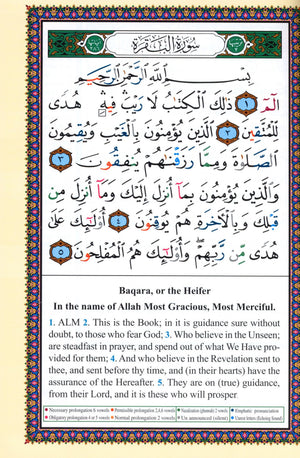 سُورَةُ البَقَرَة
بِسْمِ اللَّهِ الرَّحْمَٰنِ الرَّحِيمِ
الٓمٓ ١ ذَٰلِكَ الْكِتَٰبُ لَا رَيْبَ ۛ فِيهِ ۛ هُدًى
لِّلْمُتَّقِينَ ٢ الَّذِينَ يُؤْمِنُونَ بِالْغَيْبِ وَيُقِيمُونَ
الصَّلَوٰةَ وَمِمَّا رَزَقْنَٰهُمْ يُنفِقُونَ ٣
وَالَّذِينَ يُؤْمِنُونَ بِمَآ أُنزِلَ إِلَيْكَ وَمَآ أُنزِلَ مِن
قَبْلِكَ وَبِالْآخِرَةِ هُمْ يُوقِنُونَ ٤ أُو۟لَٰٓئِكَ عَلَىٰ
هُدًى مِّن رَّبِّهِمْ ۖ وَأُو۟لَٰٓئِكَ هُمُ الْمُفْلِحُونَ ٥
Baqara, or the Heifer
In the name of Allah Most Gracious, Most Merciful.
1. ALM 2. This is the Book; in it is guidance sure without
doubt, to those who fear God; 3. Who believe in the Unseen;
are steadfast in prayer, and spend out of what We Have pro-
vided for them; 4. And who believe in the Revelation sent to
thee, and sent before thy time, and (in their hearts) have the
assurance of the Hereafter. 5. They are on (true) guidance,
from their Lord, and it is these who will prosper.
Necessary prolongation 6 vowels Permissible prolongation 2,4,6 vowels Nazalization (ghunnah) 2 vowels Emphatic pronunciation
Obligatory prolongation 4 or 5 vowels Normal prolongation 2 vowels Un announced (silent) Unrest letters (Echoing Sound)